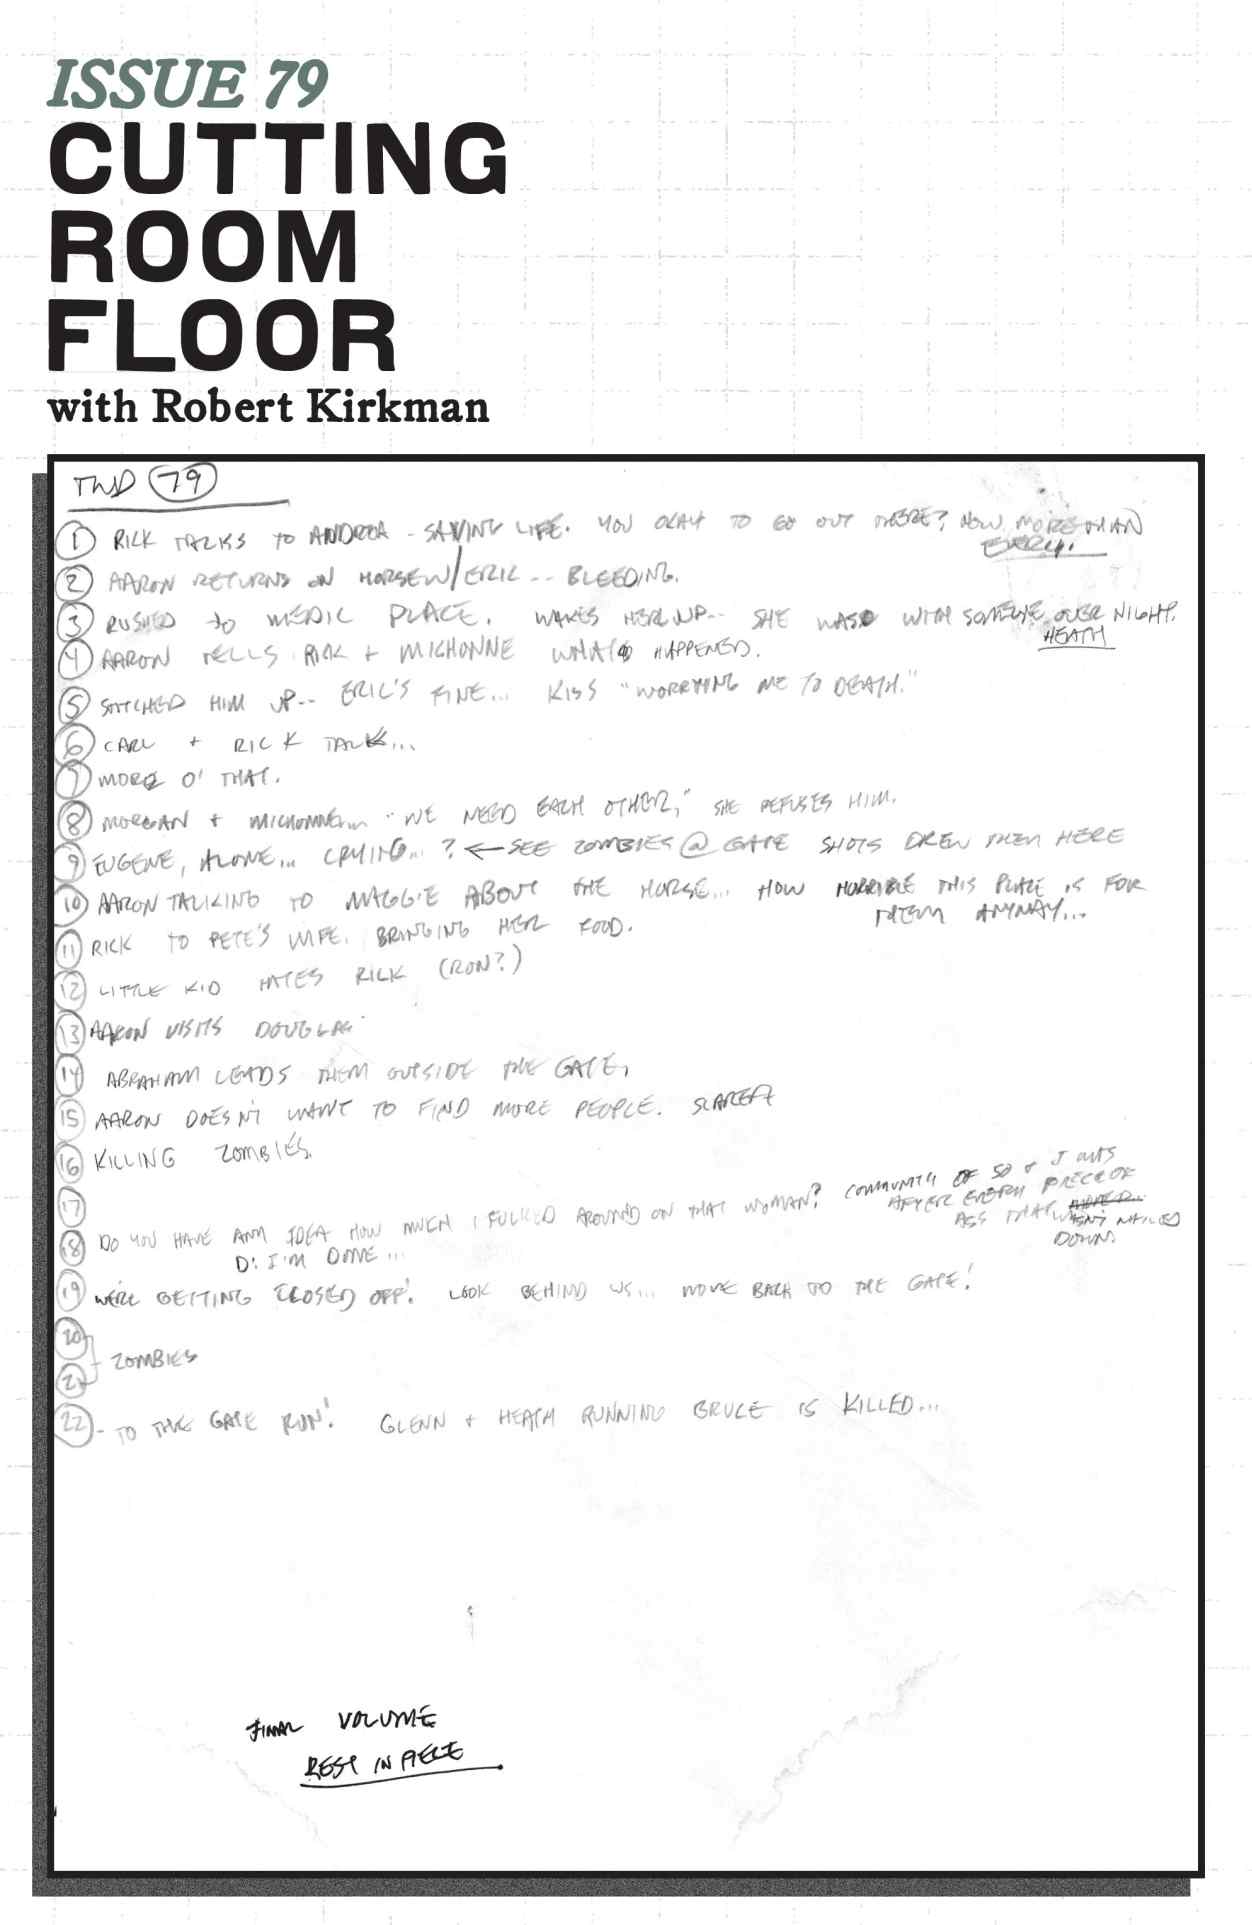 ISSUE 79
CUTTING
ROOM
FLOOR
with Robert Kirkman
TWD 79
1 RICK TALKS TO ANDREA - SAVING LIFE. YOU OKAY TO GO OUT THERE? NOW MORE THAN
EVER.
2 AARON RETURNS ON HORSE W/ ERIC -- BLEEDING.
3 RUSHED TO MEDIC PLACE. WAKES HER UP-- SHE WAS WITH SOMEONE OVER NIGHT.
HEATH
4 AARON TELLS RICK + MICHONNE WHAT HAPPENED.
5 STITCHED HIM UP-- ERIC'S FINE... KISS "WORRYING ME TO DEATH."
6 CARL + RICK TALK...
7 MORE O' THAT.
8 MORGAN + MICHONNE... "WE NEED EACH OTHER," SHE REFUSES HIM.
9 EUGENE, ALONE... CRYING...? ← SEE ZOMBIES @ GATE SHOTS DREW THEM HERE
10 AARON TALKING TO MAGGIE ABOUT THE HORSE... HOW HORRIBLE THIS PLACE IS FOR
THEM ANYWAY...
11 RICK TO PETE'S WIFE. BRINGING HER FOOD.
12 LITTLE KID HATES RICK (RON?)
13 AARON VISITS DOUGLAS
14 ABRAHAM LEADS THEM OUTSIDE THE GATE.
15 AARON DOESN'T WANT TO FIND MORE PEOPLE. SCARED
16 KILLING ZOMBIES.
17
18 DO YOU HAVE ANY IDEA HOW MUCH I FUCKED AROUND ON THAT WOMAN? COMMUNITY OF 50 + I WAS
AFTER EVERY PIECE OF
ASS THAT WASN'T NAILED
DOWN.
D: I'M DONE...
19 WE'RE GETTING CLOSED OFF! LOOK BEHIND US... MOVE BACK TO THE GATE!
20
21 ZOMBIES
22 - TO THE GATE RUN! GLENN + HEATH RUNNING BRUCE IS KILLED...
FINAL VOLUME
REST IN PIECE